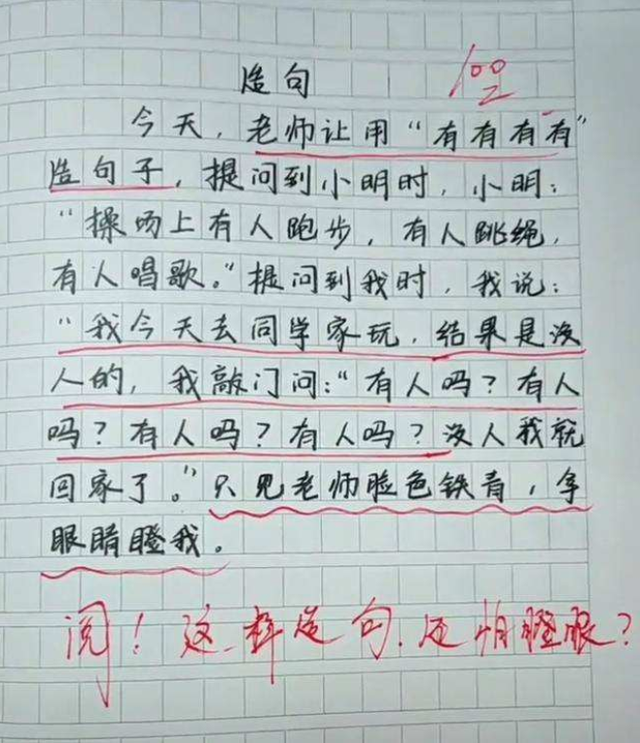 造句
100
今天,老师让用“有有有有”
造句子,提问到小明时,小明:
“操场上有人跑步,有人跳绳,
有人唱歌。”提问到我时,我说:
“我今天去同学家玩,结果是没
人的,我敲门问:“有人吗?有人
吗?有人吗?有人吗?没人我就
回家了。”只见老师脸色铁青,拿
眼睛瞪我。
阅!这样造句,还怕瞪眼?